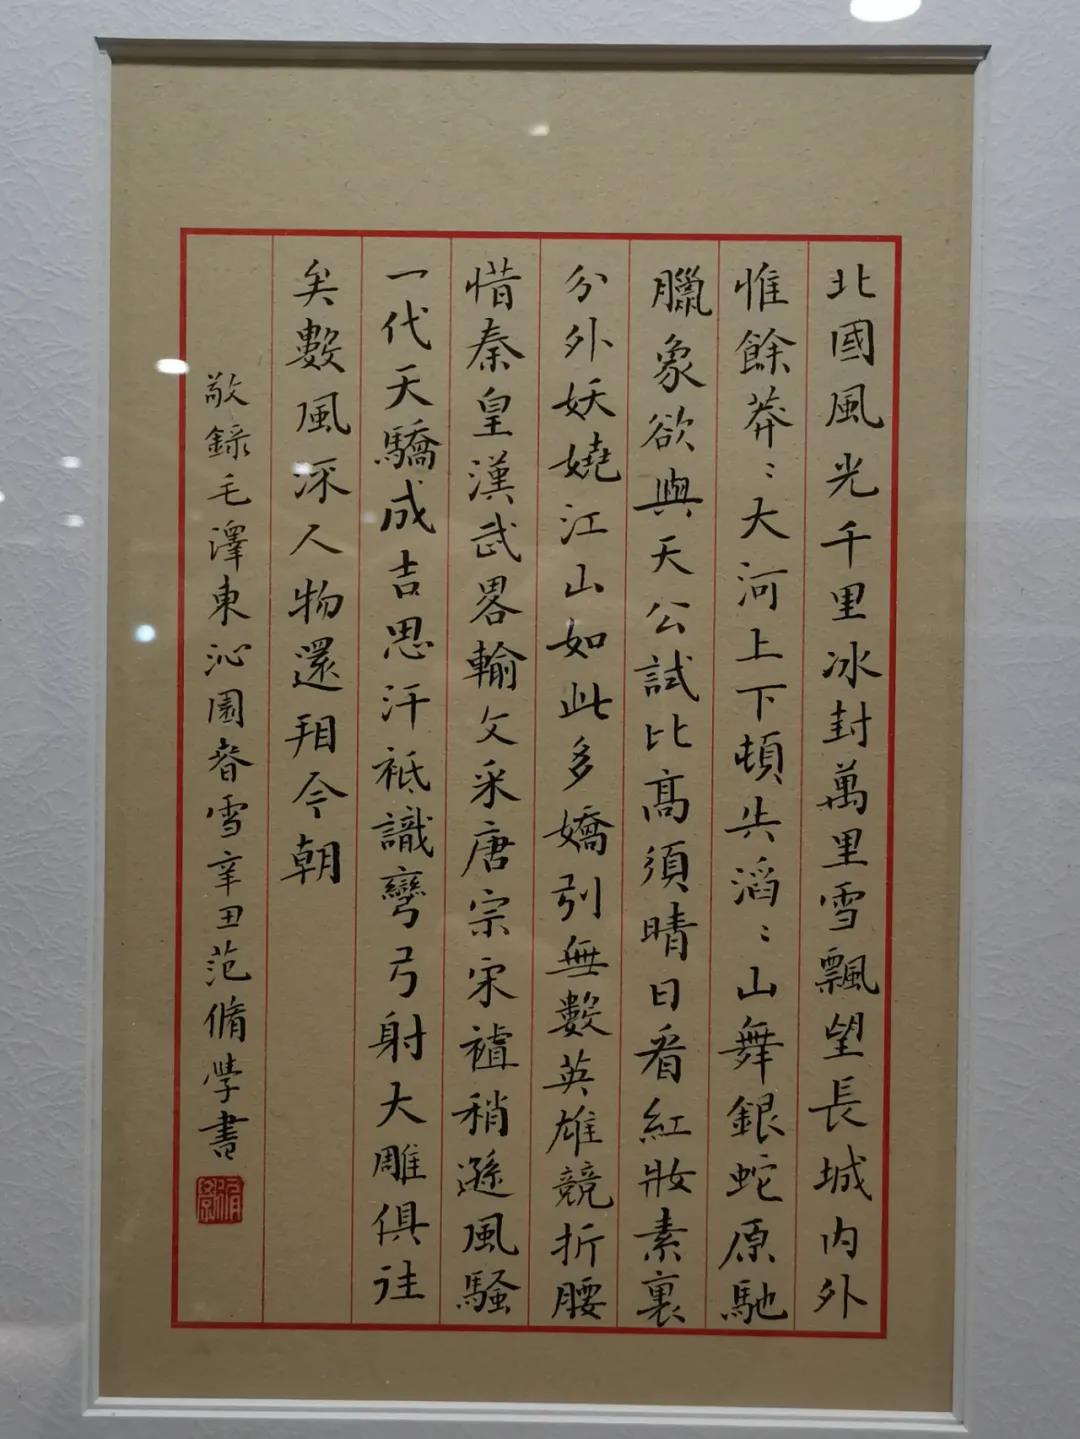 北國風光千里冰封萬里雪飄望長城內外
惟餘莽〻大河上下頓失滔〻山舞銀蛇原馳
臘象欲與天公試比高須晴日看紅妝素裹
分外妖嬈江山如此多嬌引無數英雄競折腰
惜秦皇漢武畧輸文采唐宗宋祖稍遜風騷
一代天驕成吉思汗祗識彎弓射大雕俱往
矣數風流人物還看今朝
敬錄毛澤東沁園春雪辛丑范脩學書